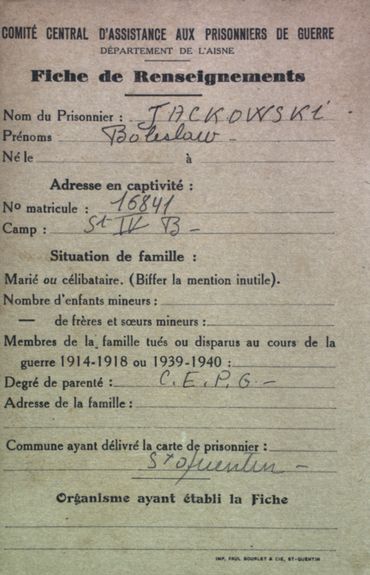 COMITÉ CENTRAL D'ASSISTANCE AUX PRISONNIERS DE GUERRE
DÉPARTEMENT DE L'AISNE
Fiche de Renseignements
Nom du Prisonnier : JACKOWSKI
Prénoms Boleslaw
Né le à
Adresse en captivité :
No matricule : 16841
Camp : St IV B
Situation de famille :
Marié ou célibataire. (Biffer la mention inutile).
Nombre d'enfants mineurs :
— de frères et sœurs mineurs :
Membres de la famille tués ou disparus au cours de la
guerre 1914-1918 ou 1939-1940 :
Degré de parenté : C.E.P.G.
Adresse de la famille :
Commune ayant délivré la carte de prisonnier :
St Quentin
Organisme ayant établi la Fiche
IMP. PAUL BOURLET & CIE, ST-QUENTIN